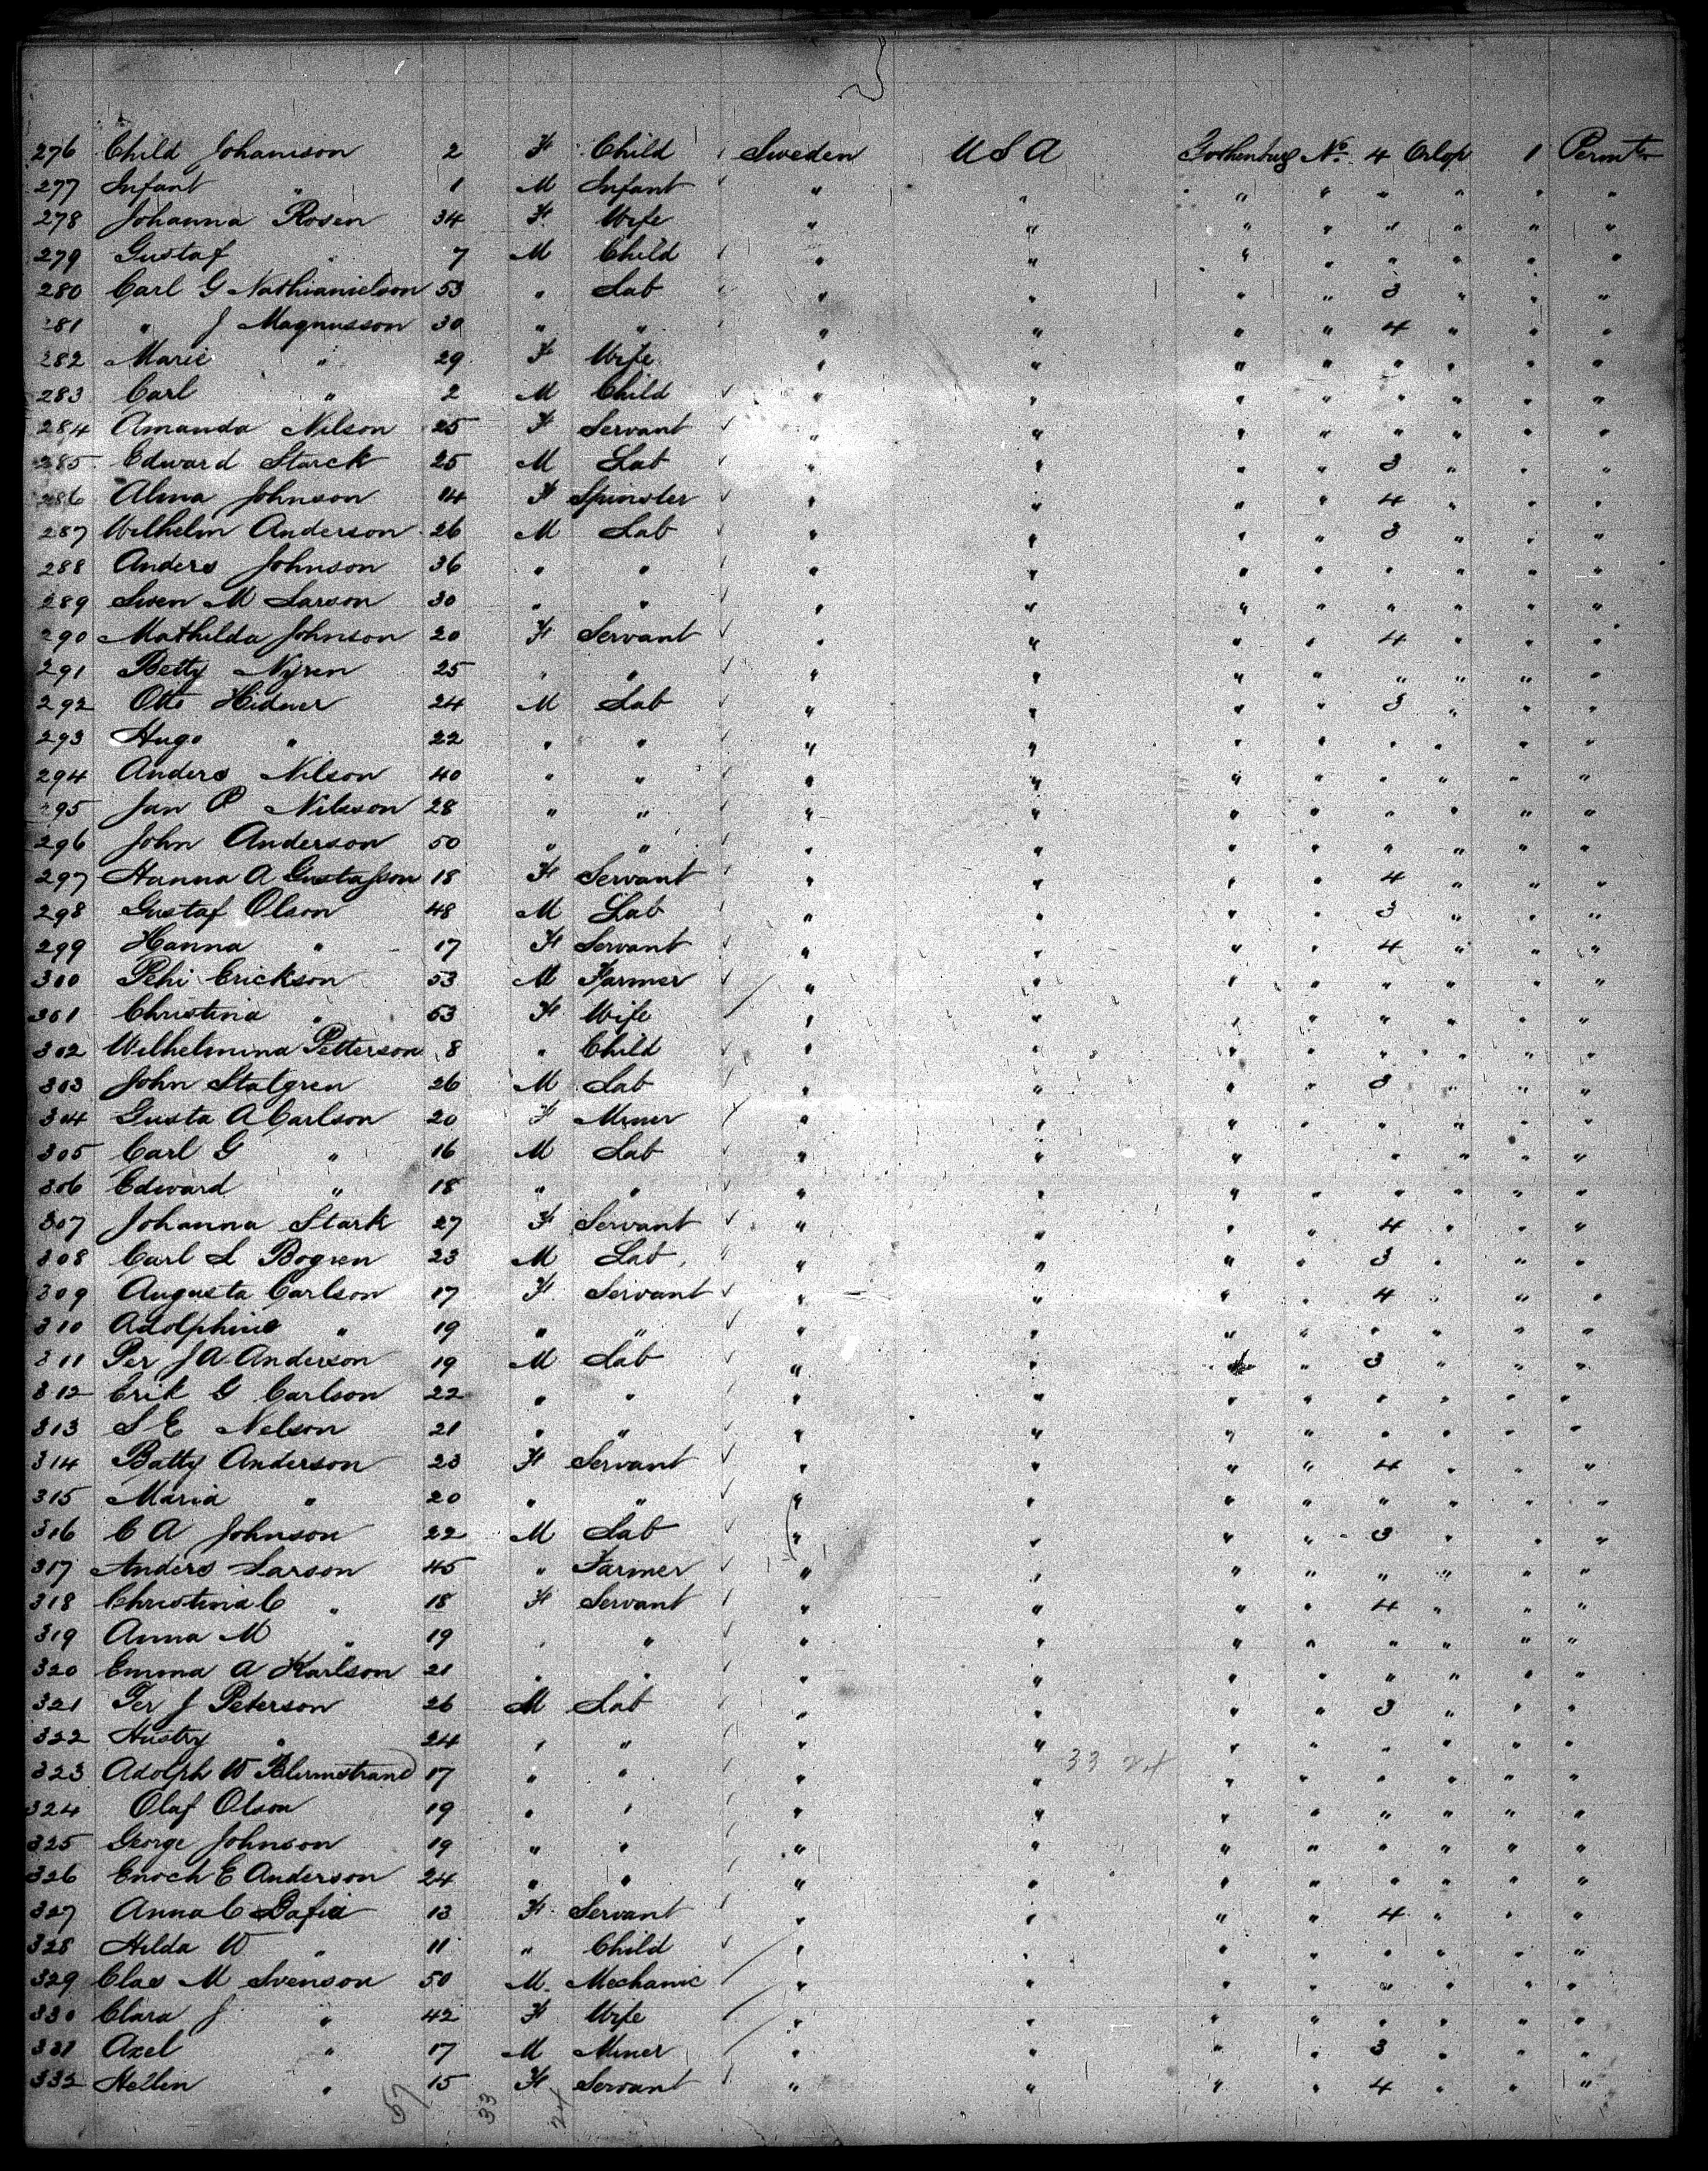 276 Child Johanison 2 F Child Sweden U S A Gothenburg No. 4 Orlop 1 Permt
277 Infant " 1 M Infant " " " " " " " "
278 Johanna Rosen 34 F Wife " " " " " " " "
279 Gustaf " 7 M Child " " " " " " " "
280 Carl G Nathianielson 53 " Lab " " " " 3 " " "
281 " J Magnusson 30 " " " " " " 4 " " "
282 Marie " 29 F Wife " " " " " " " "
283 Carl " 2 M Child " " " " " " " "
284 Amanda Nilson 25 F Servant " " " " " " " "
285 Edward Starck 25 M Lab " " " " 3 " " "
286 Alma Johnson 14 F Spinster " " " " 4 " " "
287 Wilhelm Anderson 26 M Lab " " " " 3 " " "
288 Anders Johnson 36 " " " " " " " " " "
289 Swen M Larson 30 " " " " " " " " " "
290 Mathilda Johnson 20 F Servant " " " " 4 " " "
291 Betty Nyren 25 " " " " " " " " " "
292 Otto Hidner 24 M Lab " " " " 3 " " "
293 Hugo " 22 " " " " " " " " " "
294 Anders Nilson 40 " " " " " " " " " "
295 Jan P Nilsson 28 " " " " " " " " " "
296 John Anderson 50 " " " " " " " " " "
297 Hanna A Gustafson 18 F Servant " " " " 4 " " "
298 Gustaf Olson 48 M Lab " " " " 3 " " "
299 Hanna " 17 F Servant " " " " 4 " " "
300 Pehi Erickson 53 M Farmer " " " " " " " "
301 Christina " 53 F Wife " " " " " " " "
302 Wilhelmina Petterson 8 " Child " " " " " " " "
303 John Stalgren 26 M Lab " " " " 3 " " "
304 Gusta A Carlson 20 F Miner " " " " " " " "
305 Carl G " 16 M Lab " " " " " " "
306 Edward " 18 " " " " " " " " " "
307 Johanna Stark 27 F Servant " " " " 4 " " "
308 Carl L Bogren 23 M Lab " " " " 3 " " "
309 Augusta Carlson 17 F Servant " " " " 4 " " "
310 Adolphine " 19 " " " " " " " " " "
311 Per J A Anderson 19 M Lab " " " " 3 " " "
312 Erik G Carlson 22 " " " " " " " " " "
313 S E Nelson 21 " " " " " " " " " "
314 Batty Anderson 23 F Servant " " " " 4 " " "
315 Maria " 20 " " " " " " " " " "
316 C A Johnson 22 M Lab " " " " 3 " " "
317 Anders Larson 45 " Farmer " " " " " " " "
318 Christina C " 18 F Servant " " " " 4 " " "
319 Anna M " 19 " " " " " " " " " "
320 Emma A Karlson 21 " " " " " " " " " "
321 Per J Peterson 26 M Lab " " " " 3 " " "
322 " 24 " " " " " " " " " "
323 Adolph W 17 " " " " 33 24 " " " " " "
324 Olaf Olson 19 " " " " " " " " " "
325 George Johnson 19 " " " " " " " " " "
326 Enoch E Anderson 24 " " " " " " " " " "
327 Anna C Dafia 13 F Servant " " " " 4 " " "
328 Hilda W " 11 " Child " " " " " " " "
329 Clas M Svenson 50 M Mechanic " " " " " " " "
330 Clara J " 42 F Wife " " " " " " " "
331 Axel " 17 M Miner " " " " 3 " " "
332 Hellen " 15 F Servant " " " " 4 " " "
57 33 24